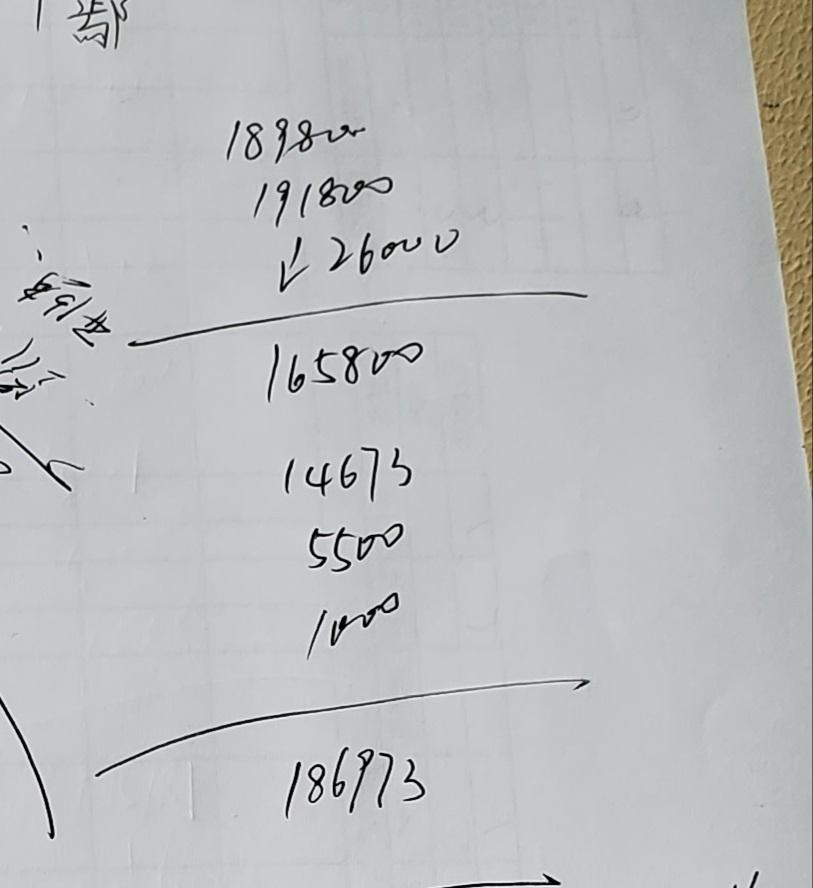 189800
191800
↓ 26000
165800
14673
5500
1000
186973